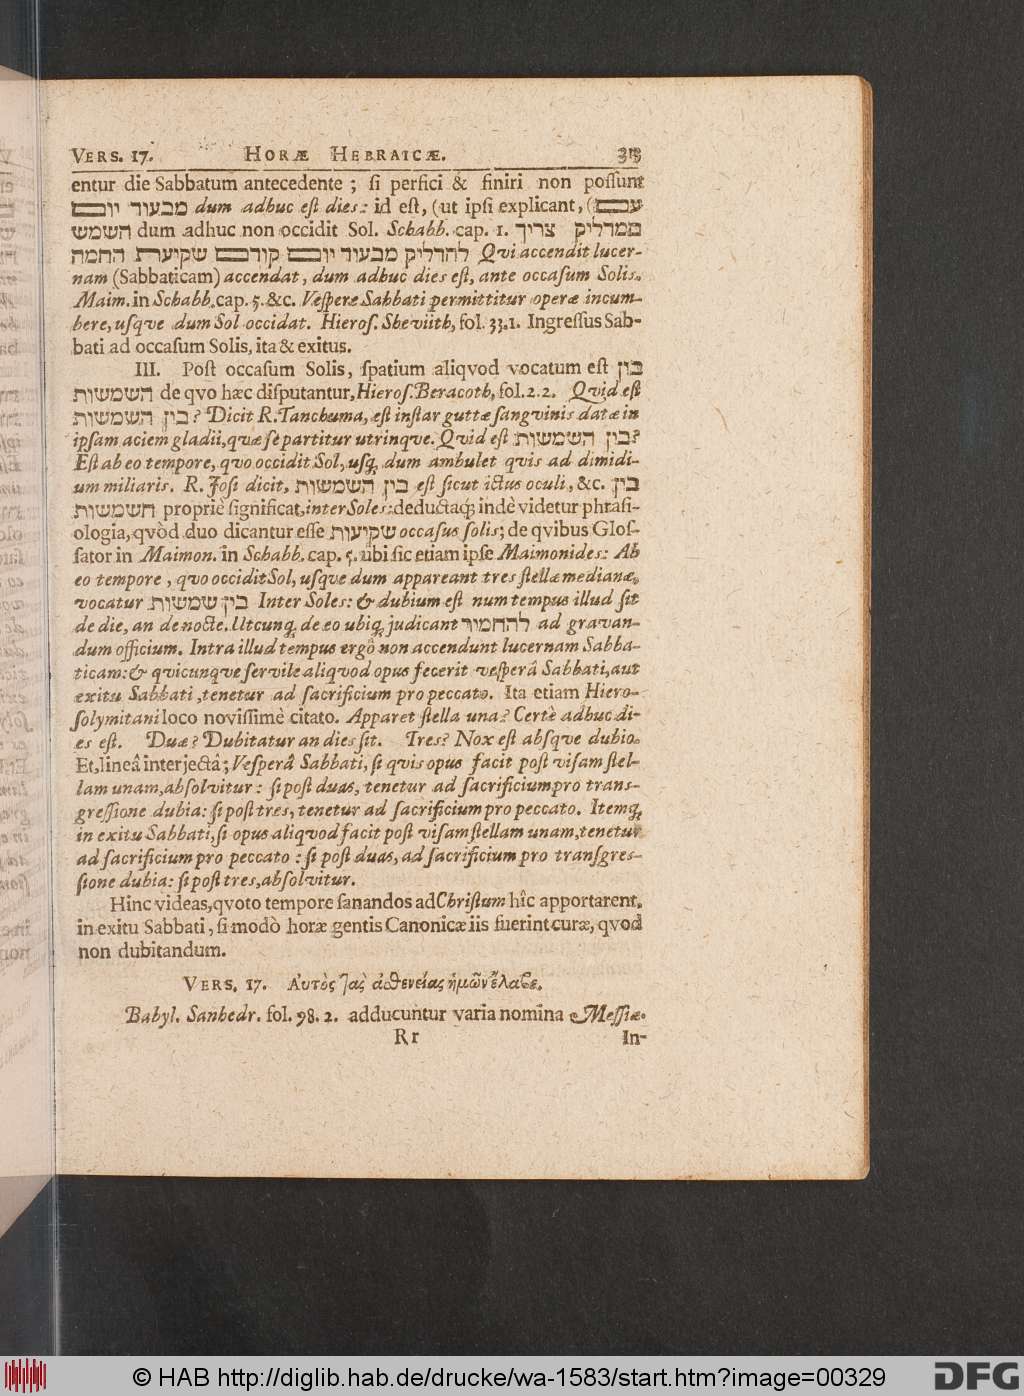 VERS. 17. HORÆ HEBRAICÆ. 313
entur die Sabbatum antecedente ; ſi perfici & finiri non poſſunt
מבעוד יום dum adhuc eſt dies: id eſt, (ut ipſi explicant, (עם
השמש dum adhuc non occidit Sol. Schabb. cap. 1. המדליק צריך
להדליק מבעוד יום קודם שקיעת החמה Qvi accendit lucer-
nam (Sabbaticam) accendat, dum adhuc dies eſt, ante occaſum Solis.
Maim. in Schabb. cap. 5. &c. Veſperæ Sabbati permittitur operæ incum-
bere, uſqve dum Sol occidat. Hieroſ. Sheviith, fol. 33. 1. Ingreſſus Sab-
bati ad occaſum Solis, ita & exitus.
III. Poſt occaſum Solis, ſpatium aliqvod vocatum eſt בין
השמשות de qvo hæc diſputantur, Hieroſ. Beracoth, fol. 2. 2. Qvid eſt
בין השמשות? Dicit R. Tanchuma, eſt inſtar guttæ ſangvinis datæ in
ipſam aciem gladii, qvæ ſe partitur utrinqve. Qvid eſt בין השמשות?
Eſt ab eo tempore, qvo occidit Sol, uſq; dum ambulet qvis ad dimidi-
um miliaris. R. Joſi dicit, בין השמשות eſt ſicut ictus oculi, &c. בין
השמשות propriè ſignificat, inter Soles: deductaq; indè videtur phraſi-
ologia, qvòd duo dicantur eſſe שקיעות occaſus ſolis; de qvibus Gloſ-
ſator in Maimon. in Schabb. cap. 5. ubi ſic etiam ipſe Maimonides: Ab
eo tempore, qvo occidit Sol, uſqve dum appareant tres ſtellæ medianæ,
vocatur בין שמשות Inter Soles: & dubium eſt num tempus illud ſit
de die, an de nocte. Utcunq; de eo ubiq; judicant להחמיר ad gravan-
dum officium. Intra illud tempus ergô non accendunt lucernam Sabba-
ticam: & qvicunqve ſervile aliqvod opus fecerit veſperâ Sabbati, aut
exitu Sabbati, tenetur ad ſacrificium pro peccato. Ita etiam Hiero-
ſolymitani loco noviſſimè citato. Apparet ſtella una? Certè adhuc di-
es eſt. Duæ? Dubitatur an dies ſit. Tres? Nox eſt abſqve dubio.
Et, lineâ interjectâ; Veſperâ Sabbati, ſi qvis opus facit poſt viſam ſtel-
lam unam, abſolvitur: ſi poſt duas, tenetur ad ſacrificium pro trans-
greſſione dubia: ſi poſt tres, tenetur ad ſacrificium pro peccato. Itemq;
in exitu Sabbati, ſi opus aliqvod facit poſt viſam ſtellam unam, tenetur
ad ſacrificium pro peccato: ſi poſt duas, ad ſacrificium pro tranſgreſ-
ſione dubia: ſi poſt tres, abſolvitur.
Hinc videas, qvoto tempore ſanandos ad Chriſtum hîc apportarent,
in exitu Sabbati, ſi modò horæ gentis Canonicæ iis fuerint curæ, qvod
non dubitandum.
VERS. 17. Αυτὸς τὰς ἀσθενείας ἡμῶν ἔλαβε.
Babyl. Sanhedr. fol. 98. 2. adducuntur varia nomina Meſſiæ.
Rr In-
© HAB http://diglib.hab.de/drucke/wa-1583/start.htm?image=00329
DFG